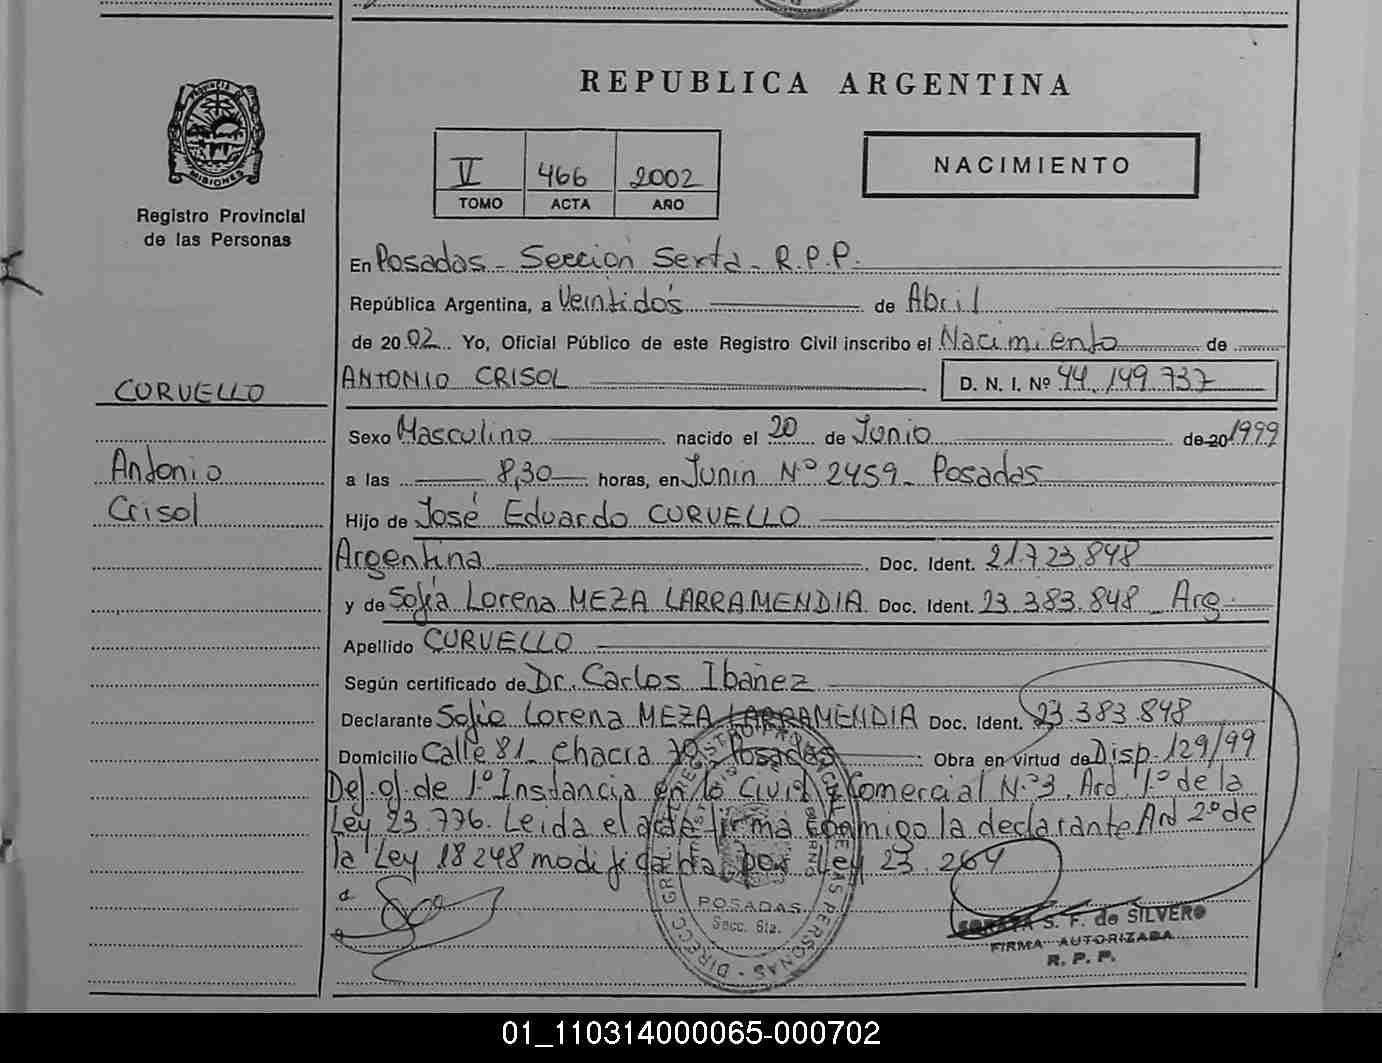 REPUBLICA ARGENTINA
PROVINCIA DE
MISIONES
Registro Provincial
de las Personas
V 466 2002
TOMO ACTA AÑO
NACIMIENTO
En Posadas - Sección Sexta - R.P.P.
República Argentina, a Veintidós de Abril
de 2002 Yo, Oficial Público de este Registro Civil inscribo el Nacimiento de
CURVELLO
ANTONIO CRISOL D. N. I. Nº 44.149.737
Sexo Masculino nacido el 20 de Junio de 20 1999
Antonio
a las 8,30 horas, en Junin Nº 2459 - Posadas
Crisol
Hijo de José Eduardo CURVELLO
Argentina Doc. Ident. 21.723.848
y de Sofia Lorena MEZA LARRAMENDIA Doc. Ident. 23.383.848 - Arg.
Apellido CURVELLO
Según certificado de Dr. Carlos Ibañez
Declarante Sofia Lorena MEZA LARRAMENDIA Doc. Ident. 23.383.848
Domicilio Calle 81 - Chacra Posadas Obra en virtud de Disp. 129/99
1º Instancia en lo Civil y Comercial Nº 3. Art 1º de la
Ley 23.776. Leida el acta firma conmigo la declarante Art 2º de
la Ley 18248 modificada por Ley 23.264
POSADAS
Secc. 6ta.
S. F. de SILVERO
FIRMA AUTORIZADA
R. P. P.
01_110314000065-000702